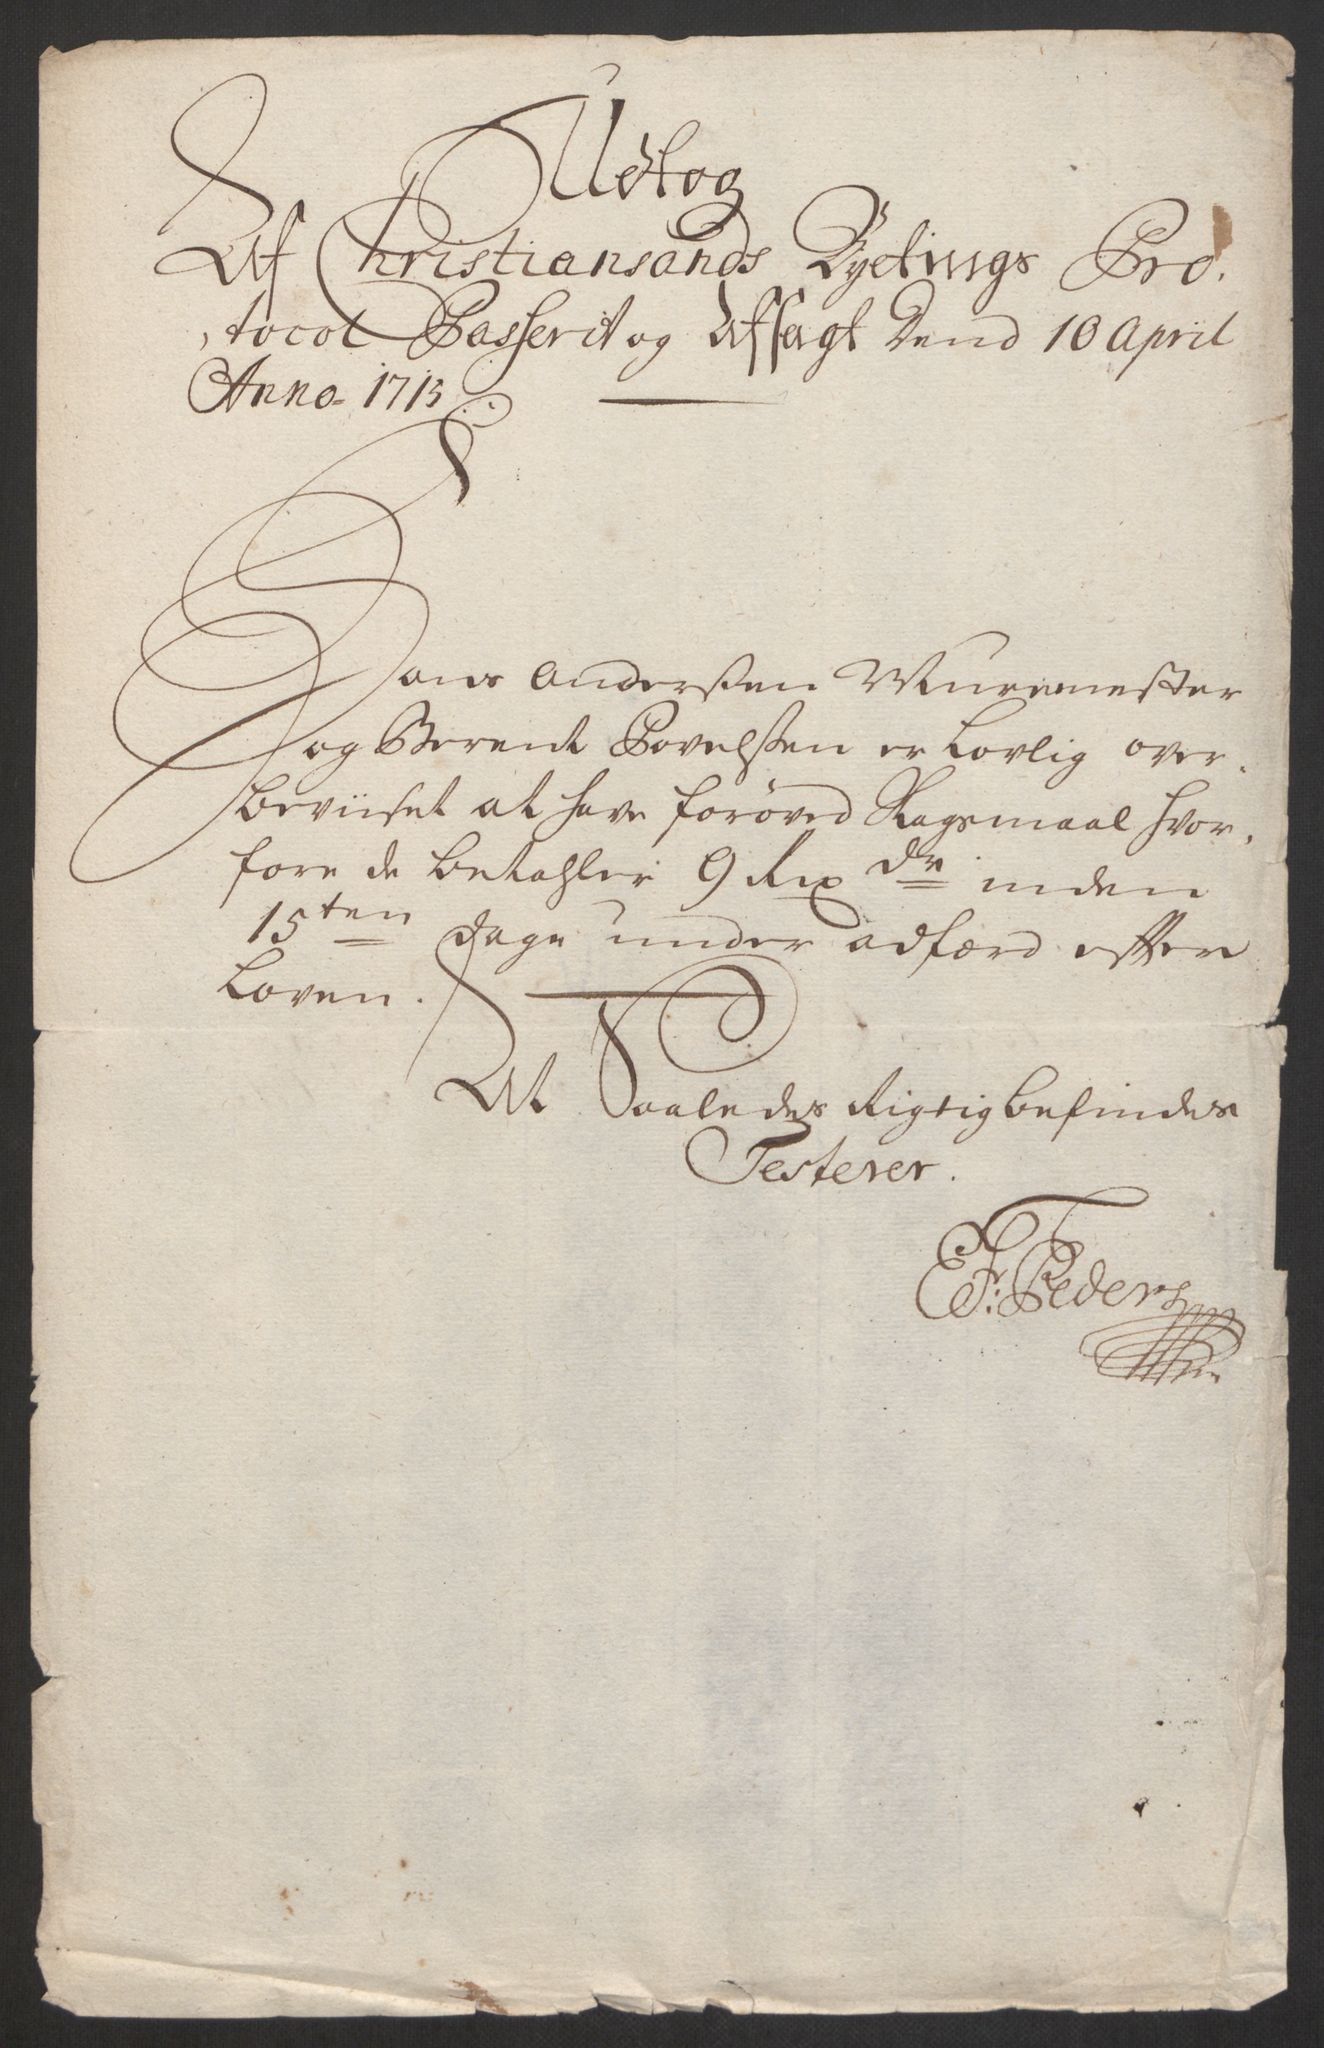 Udtog
Af Christiansands Byetings Pro,
,tocol Passerit og Affsagt Dend 10 April
Anno 1713
Hans Anderssen Muremester
og Berent Povelssen er Lovlig over,
beviiset at have forøved Slagsmaal hvor,
fore de betahler 9 Rix dr inden
15ten dage under adfærd efter
Loven.
At Saaledes Rigtig befindes
Testerer.
E: F: Peders